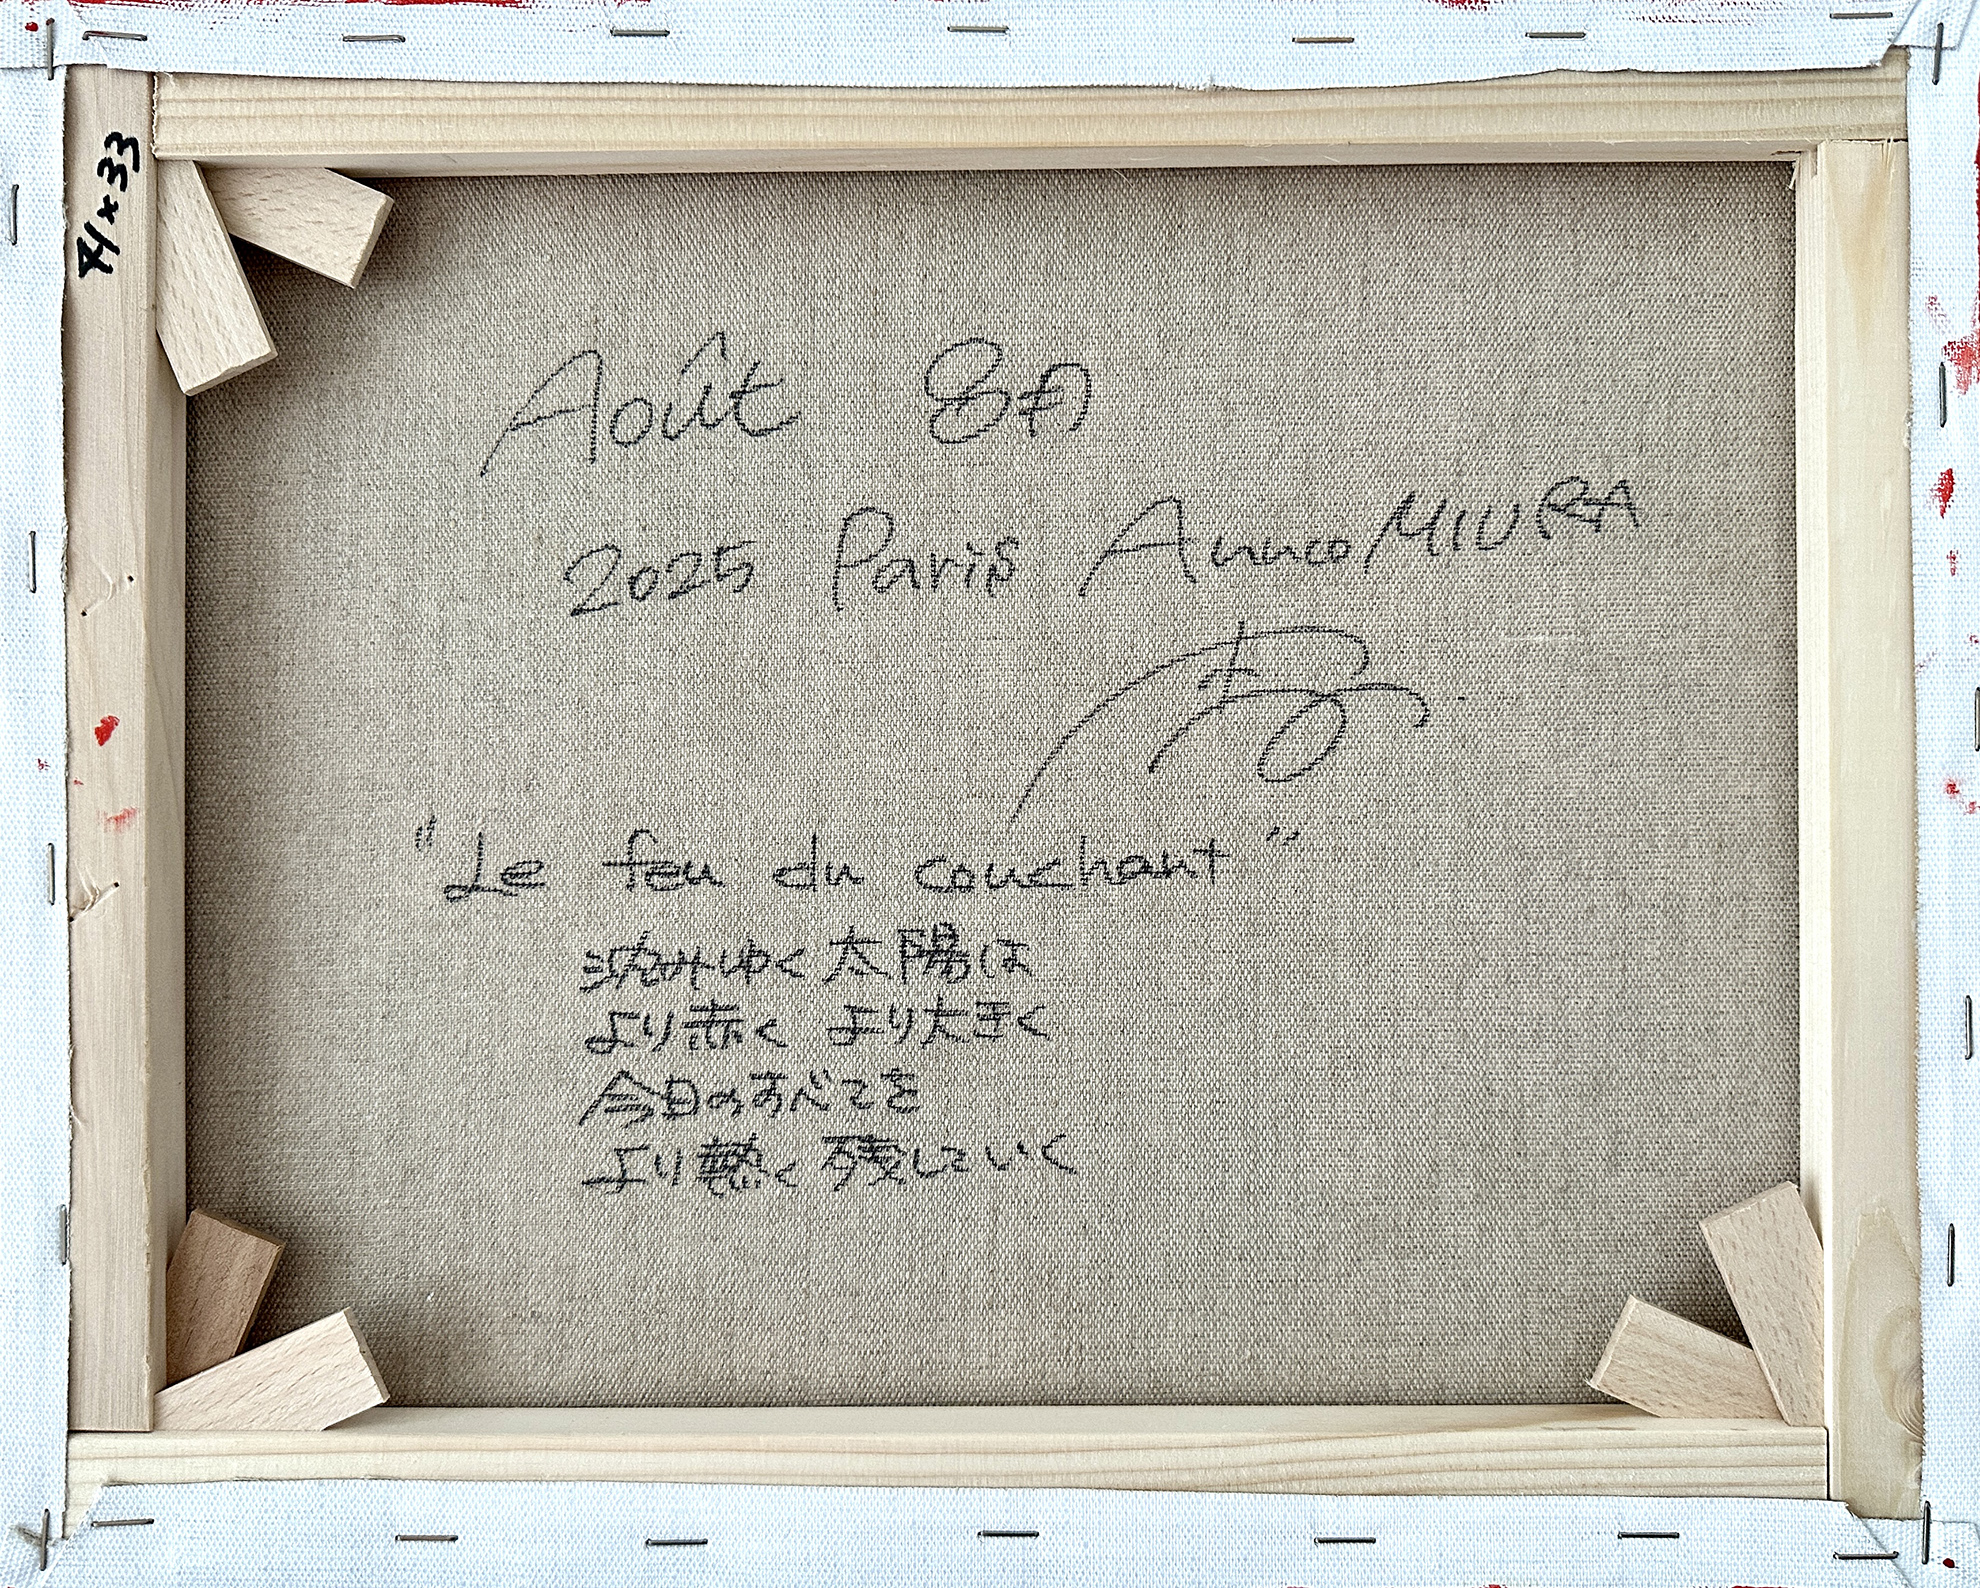 41×33
Août 8月
2025 Paris Annco MIURA
"Le feu du couchant"
沈みゆく太陽は
より赤く より大きく
今日のすべてを
より熱く残していく